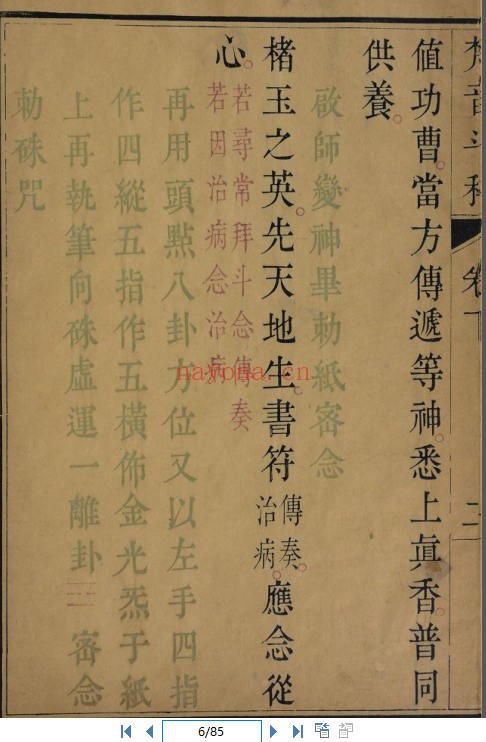 梵音斗科 卷下 二
值功曹。當方傳遞等神。悉上眞香。普同
供養。
啟師變神畢勅紙密念
楮玉之英。先天地生。書符傳奏。治病。應念從
心。若尋常拜斗念傳奏
若因治病念治病
再用頭點八卦方位又以左手四指
作四縱五指作五橫佈金光炁于紙
上再執筆向硃虛運一離卦☲密念
勅硃咒
nayona.cn
6/85